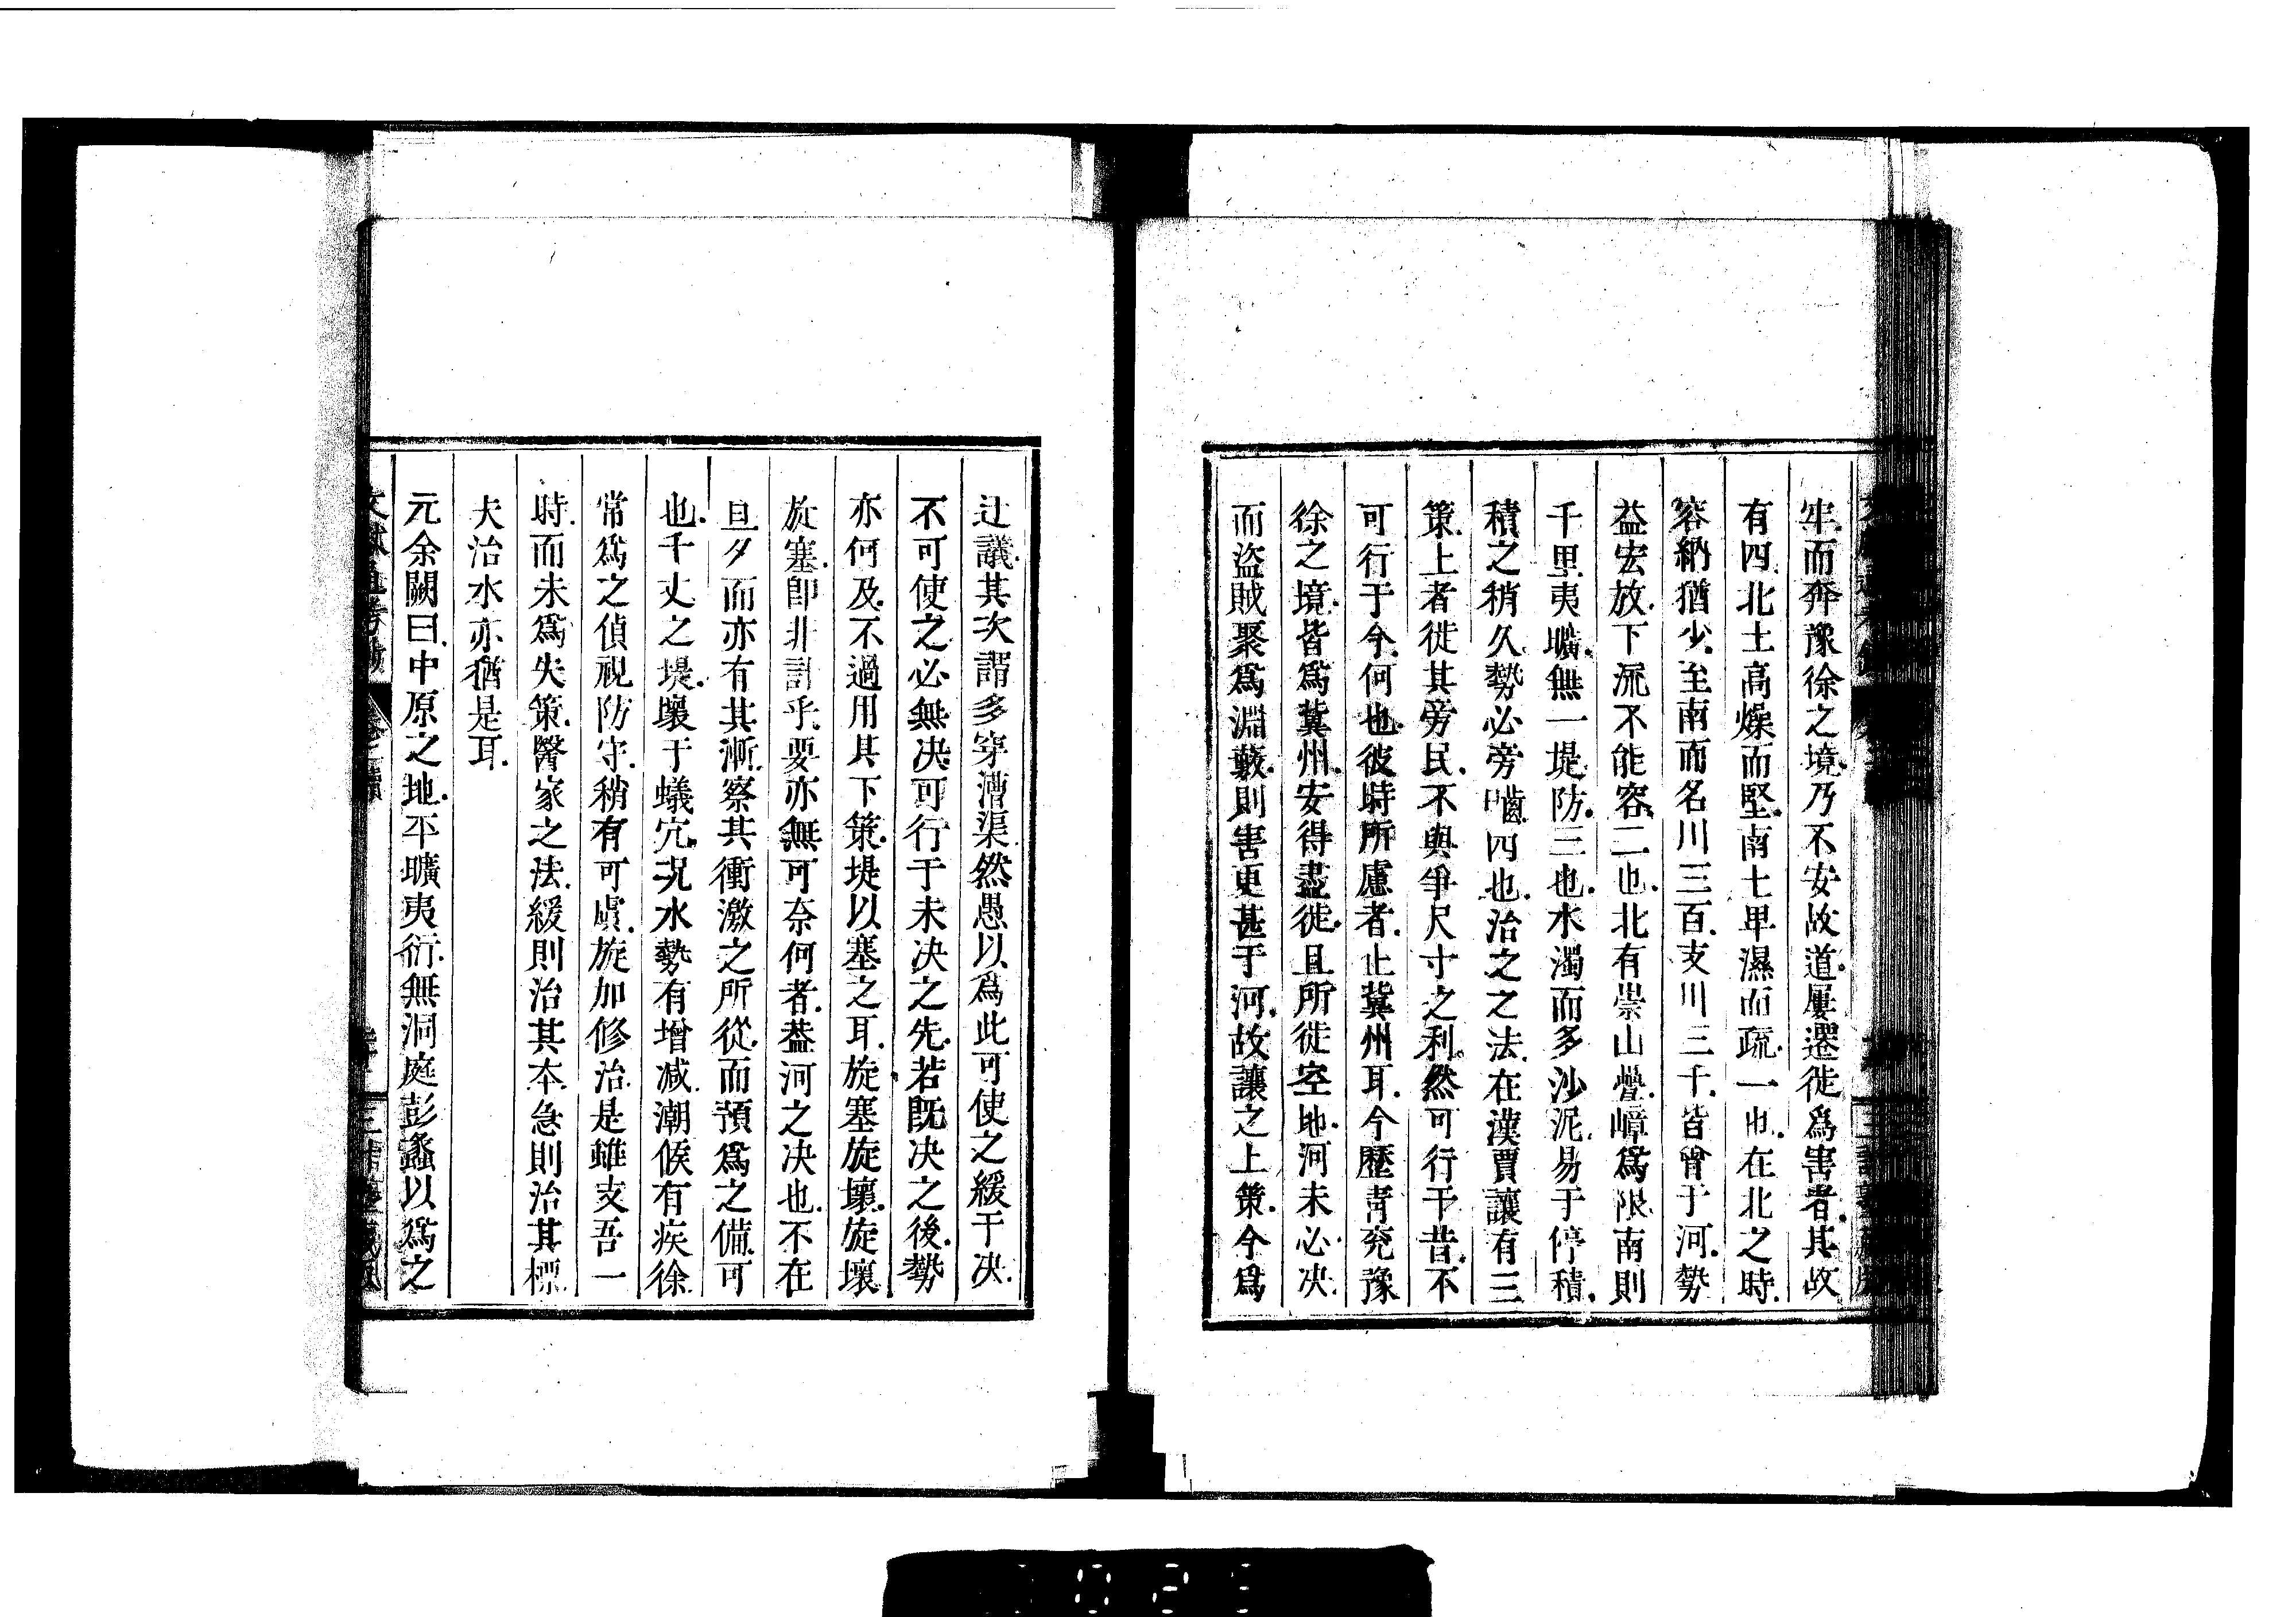 牢而奔豫徐之境乃不安故道屢遷徙爲害者其故
有四北土高燥而堅南土卑濕而疏一也在北之時
容納猶少至南而名川三百支川三千皆會于河勢
益宏放下流不能容二也北有崇山疊嶂爲限南則
千里夷曠無一堤防三也水濁而多沙泥易于停積
積之稍久勢必旁嚙四也治之之法在漢賈讓有三
策上者徙其旁民不與爭尺寸之利然可行于昔不
可行于今何也彼時所慮者止冀州耳今歷青兗豫
徐之境皆爲冀州安得盡徙且所徙空地河未必决
而盜賊聚爲淵藪則害更甚于河故讓之上策今爲
迂議其次謂多穿漕渠然愚以爲此可使之緩于决
不可使之必無决可行于未决之先若既决之後勢
亦何及不過用其下策堤以塞之耳旋塞旋壞旋壞
旋塞即非計乎要亦無可奈何者葢河之决也不在
旦夕而亦有其漸察其衝激之所從而預爲之備可
也千丈之堤壞于蟻穴况水勢有增减潮候有疾徐
常爲之偵視防守稍有可虞旋加修治是雖支吾一
時而未爲失策醫家之法緩則治其本急則治其標
夫治水亦猶是耳
元余闕曰中原之地平曠夷衍無洞庭彭蠡以爲之